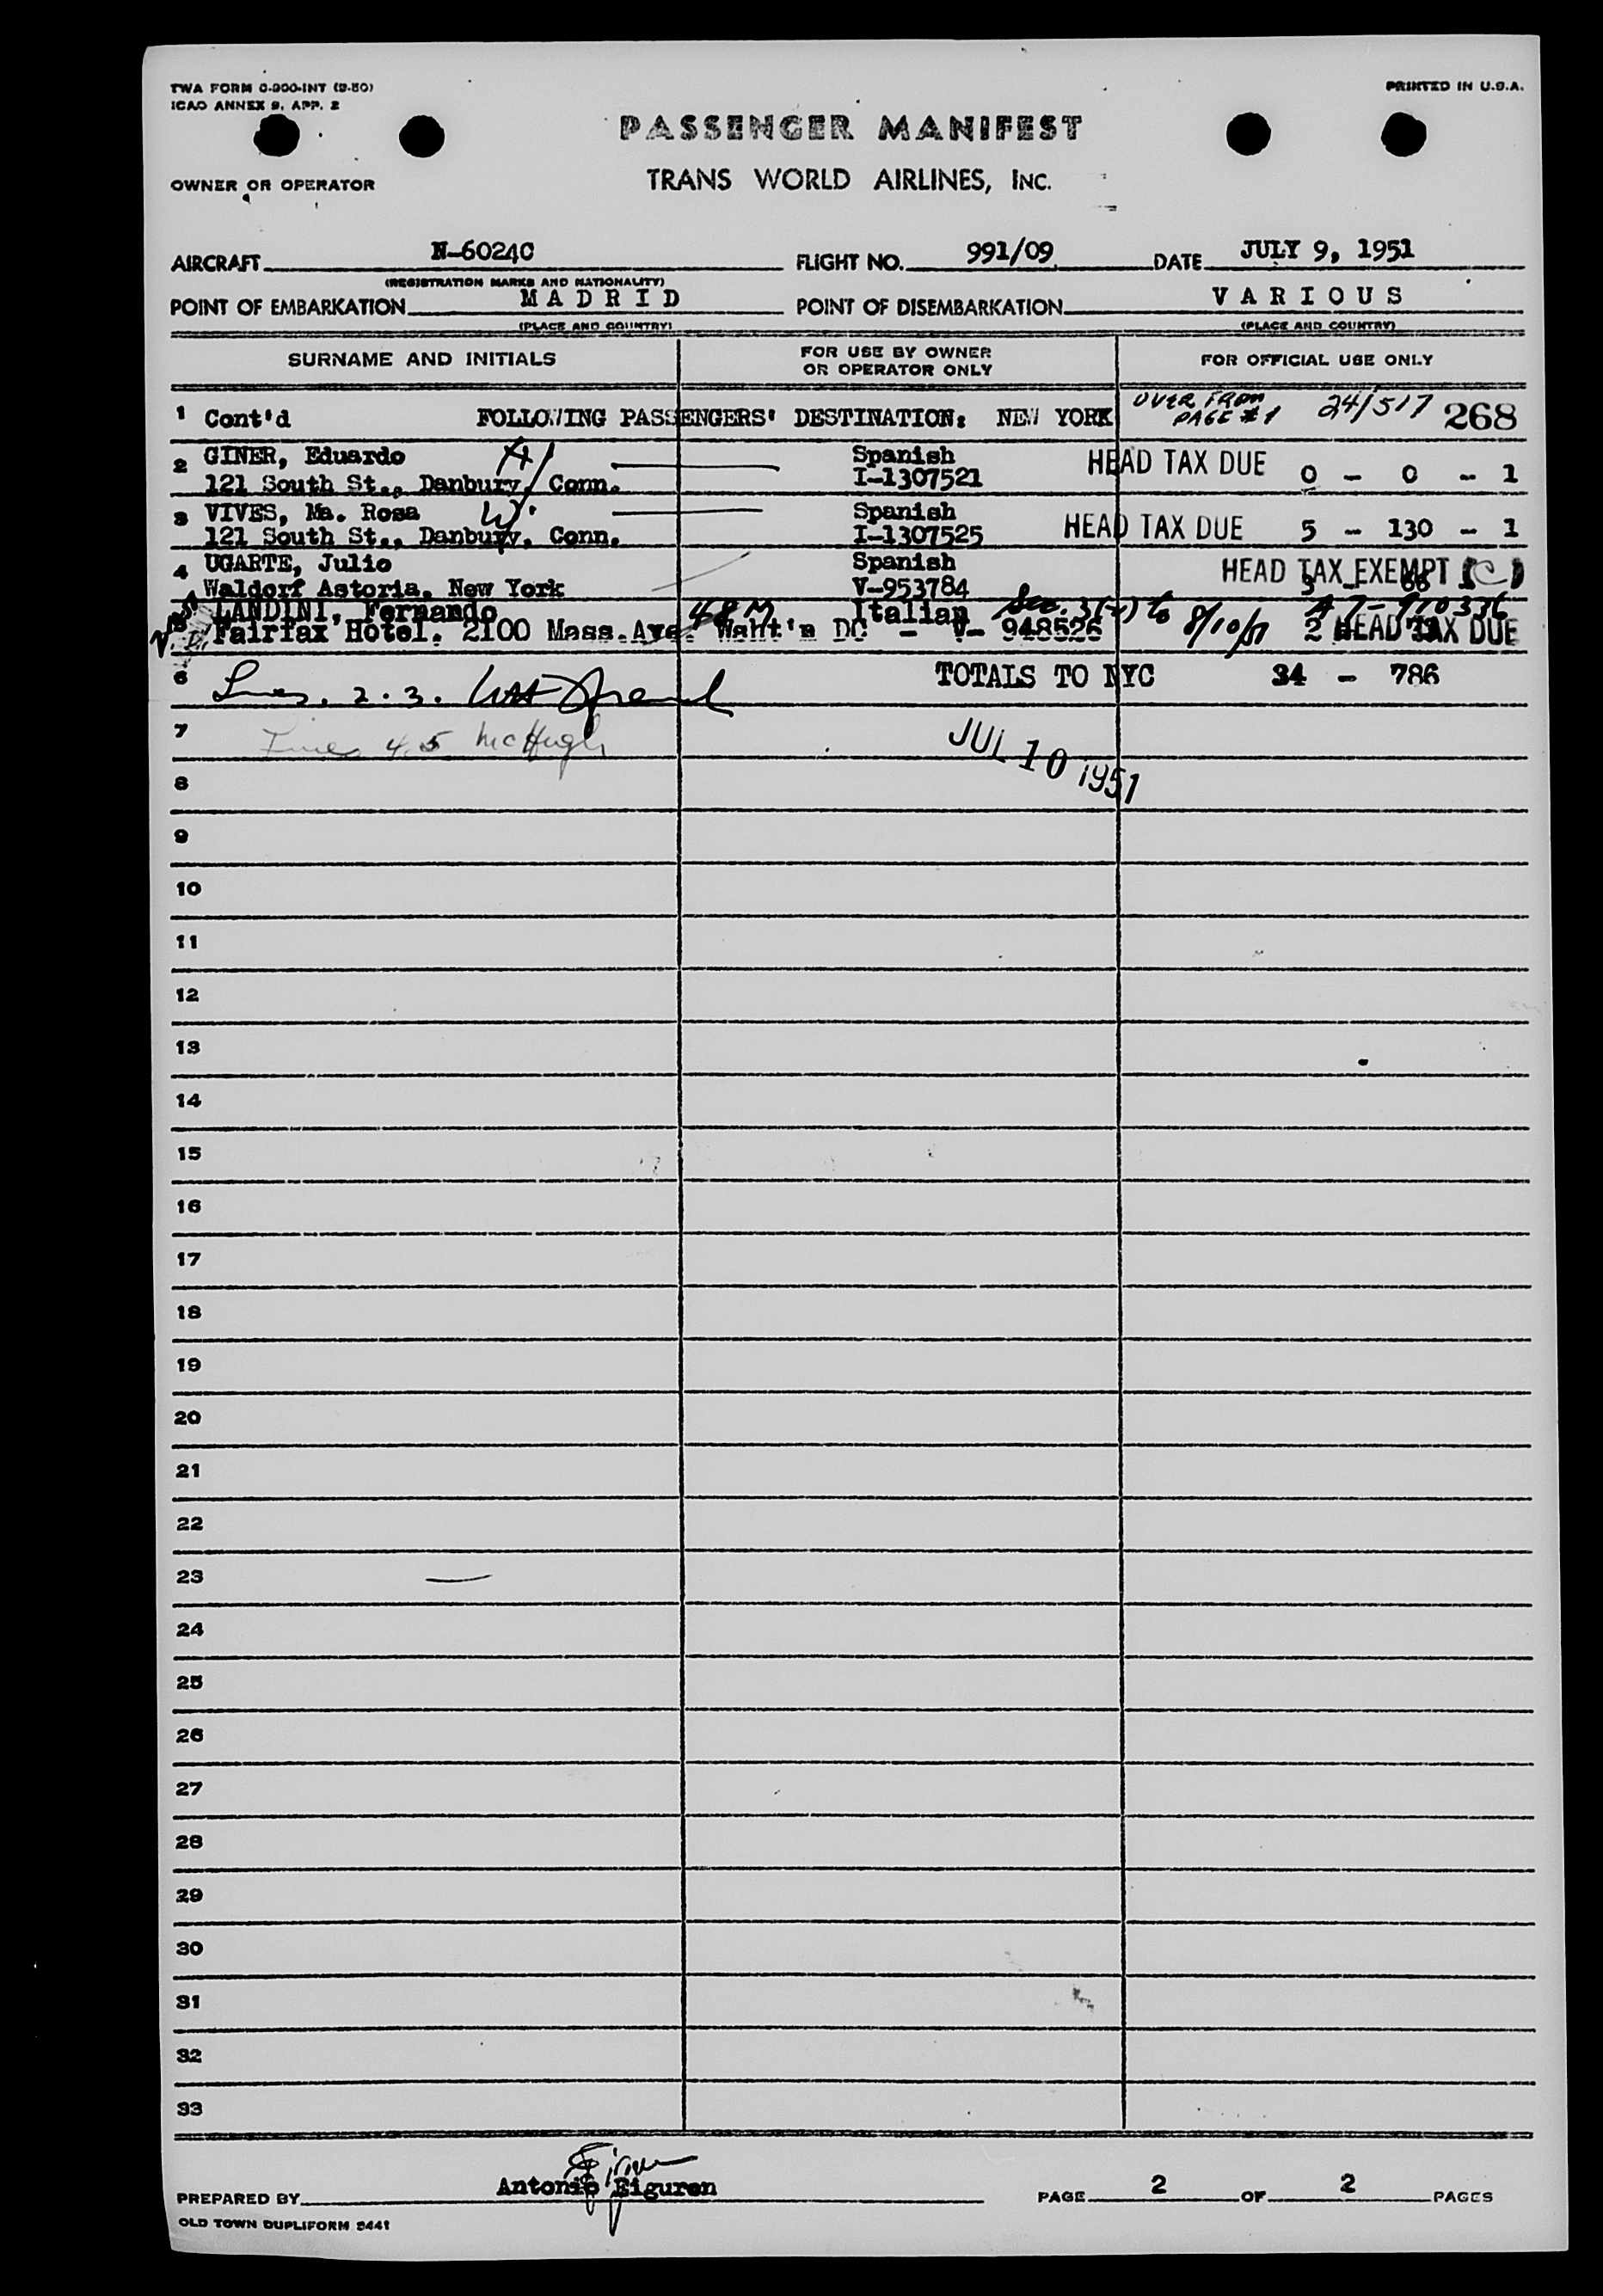 TWA FORM C-900-INT (9-50)
ICAO ANNEX 9, APP. 2
PRINTED IN U.S.A.
PASSENGER MANIFEST
OWNER OR OPERATOR
TRANS WORLD AIRLINES, INC.
AIRCRAFT N-6024C FLIGHT NO. 991/09 DATE JULY 9, 1951
(REGISTRATION MARKS AND NATIONALITY)
POINT OF EMBARKATION MADRID POINT OF DISEMBARKATION VARIOUS
(PLACE AND COUNTRY) (PLACE AND COUNTRY)
SURNAME AND INITIALS FOR USE BY OWNER OR OPERATOR ONLY FOR OFFICIAL USE ONLY
OVER FROM PAGE #1 24/517 268
1 Cont'd FOLLOWING PASSENGERS' DESTINATION: NEW YORK
2 GINER, Eduardo Spanish HEAD TAX DUE 0 - 0 - 1
121 South St., Danbury, Conn. I-1307521
3 VIVES, Ma. Rosa W. Spanish HEAD TAX DUE 5 - 130 - 1
121 South St., Danbury, Conn. I-1307525
4 UGARTE, Julio Spanish HEAD TAX EXEMPT (C)
Waldorf Astoria, New York V-953784 3 - 66
LANDINI, Fernando 48M Italian Sec. 3(2) to 8/10/51
Fairfax Hotel. 2100 Mass.Ave. Wsht'n DC - V- 948526 2 HEAD TAX DUE
6 TOTALS TO NYC 34 - 786
Lines. 2.3.
7 Line 4,5 McHugh
JUL 10 1951
8
9
10
11
12
13
14
15
16
17
18
19
20
21
22
23
24
25
26
27
28
29
30
31
32
33
PREPARED BY Antonio Eiguren PAGE 2 OF 2 PAGES
OLD TOWN DUPLIFORM 5441